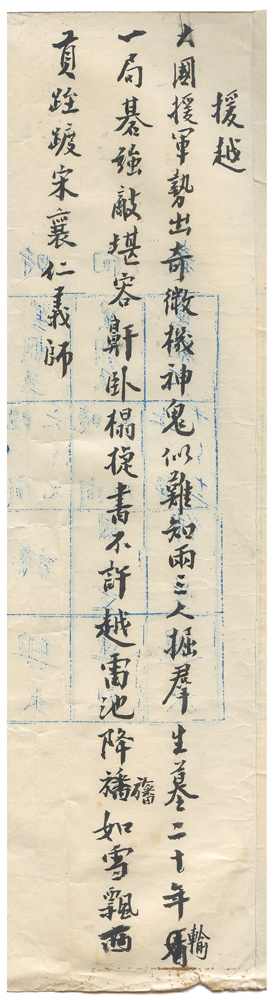 援越
大國援軍勢出奇微機神鬼似難知兩三人掘羣生墓二十年輸
一局碁強敵堪容鼾臥榻捷書不許越雷池降旛如雪飄西
貢跮踱宋襄仁義師